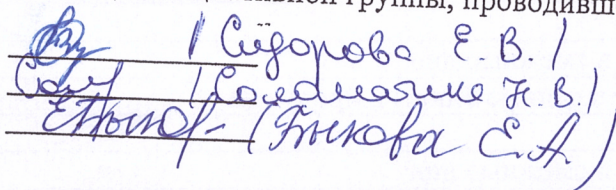 группы, проводивш
/ Сидорова Е. В. /
/ Соломатина Н. В. /
(Быкова Е.А.)